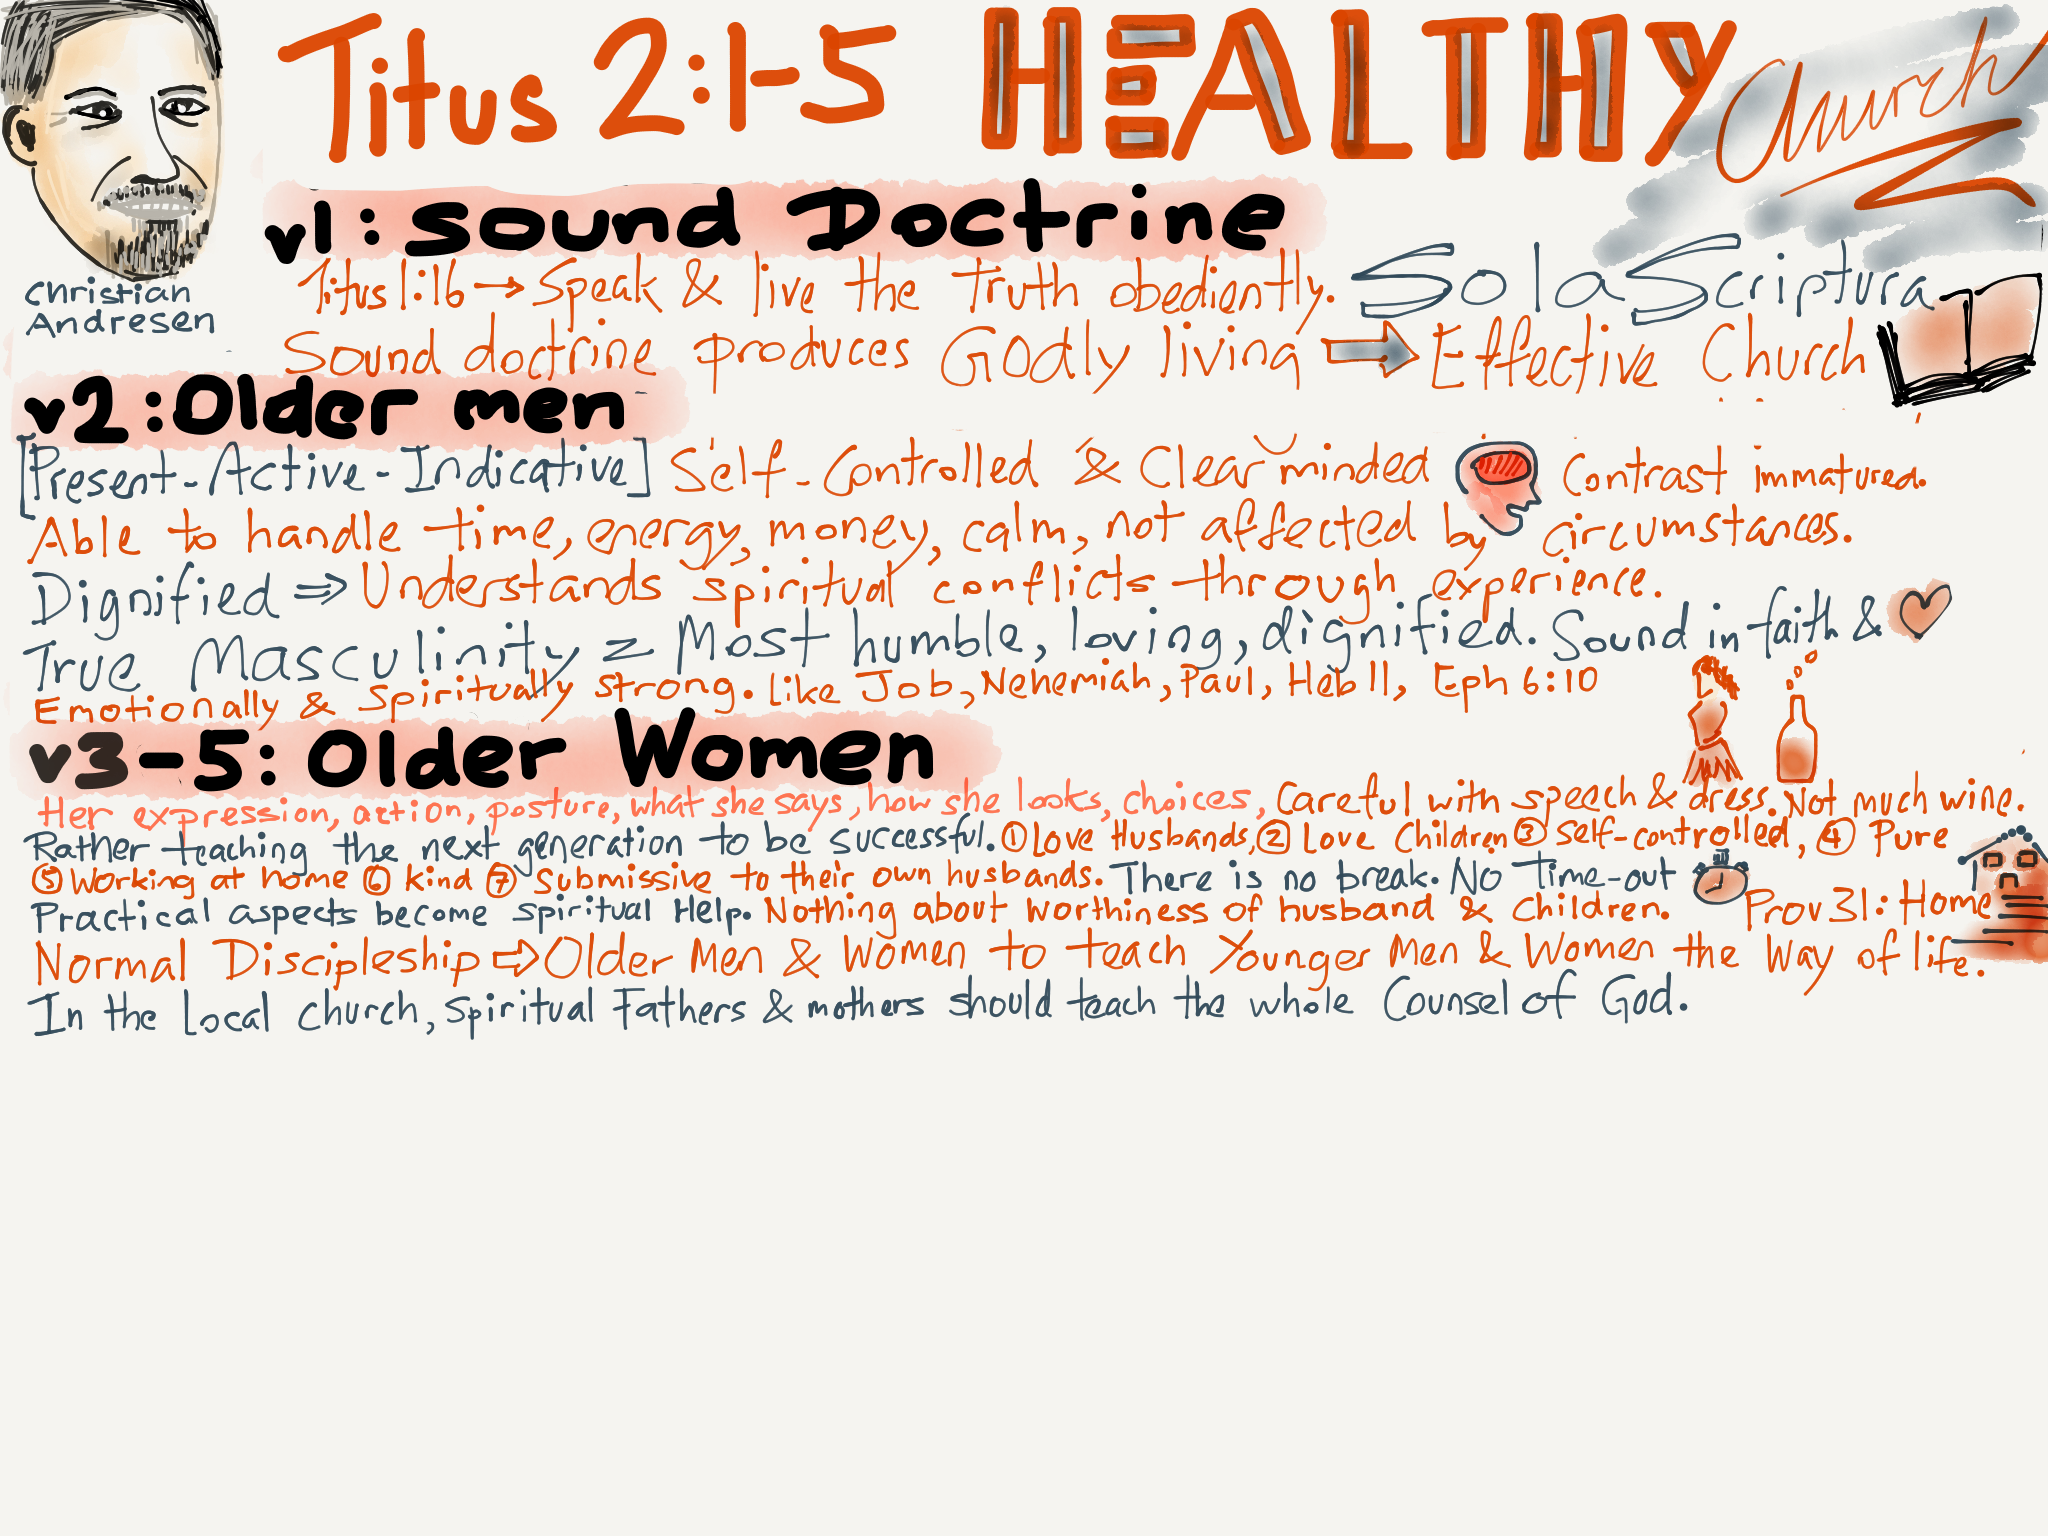 Titus 2:1-5 HEALTHY Church
Christian
Andresen
v1: Sound Doctrine
Titus 1:16 → Speak & live the Truth obediently. Sola Scriptura
Sound doctrine produces Godly living ⇨ Effective Church
v2: Older men
[Present-Active-Indicative] Self-Controlled & Clear minded Contrast immatured.
Able to handle time, energy, money, calm, not affected by circumstances.
Dignified ⇒ Understands spiritual conflicts through experience.
True Masculinity = Most humble, loving, dignified. Sound in faith &
Emotionally & Spiritually strong. Like Job, Nehemiah, Paul, Heb 11, Eph 6:10
v3-5: Older Women
Her expression, action, posture, what she says, how she looks, choices, Careful with speech & dress. Not much wine.
Rather teaching the next generation to be successful. ① Love Husbands, ② Love Children ③ Self-controlled, ④ Pure
⑤ Working at home ⑥ kind ⑦ Submissive to their own husbands. There is no break. No Time-out
Practical aspects become spiritual Help. Nothing about worthiness of husband & Children. Prov 31: Home
Normal Discipleship ⇨ Older Men & Women to teach Younger Men & Women the Way of life.
In the Local church, Spiritual Fathers & mothers should teach the whole Counsel of God.